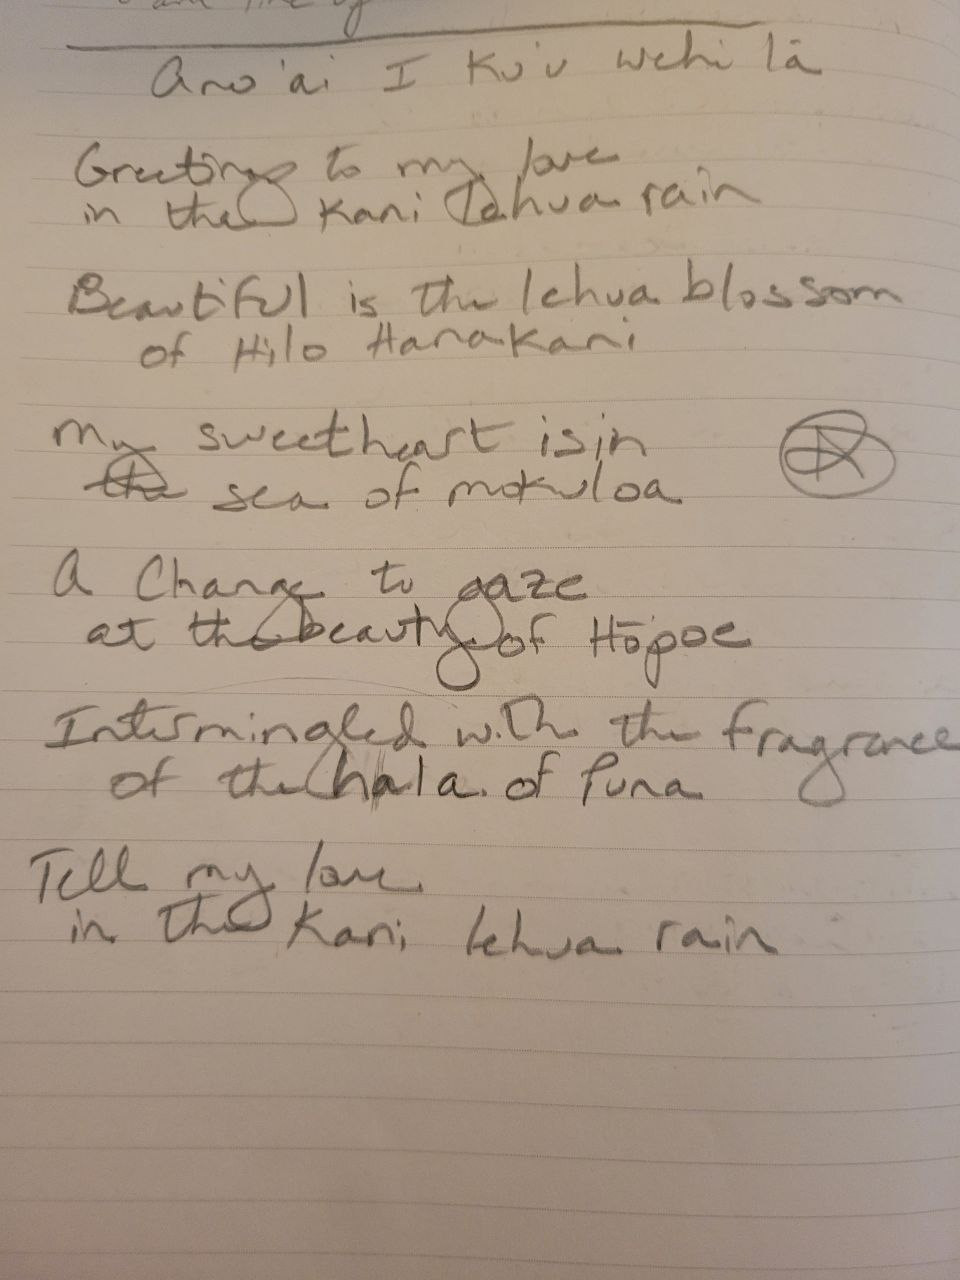 Ano'ai I Ku'u wehi lā
Greetings to my love
in the Kani Lehua rain
Beautiful is the lehua blossom
of Hilo Hanakani
My sweetheart is in
sea of mokuloa
A Change to gaze
at the beauty of Hōpoe
Intermingled with the fragrance
of the hala of Puna
Tell my love
in the Kani lehua rain